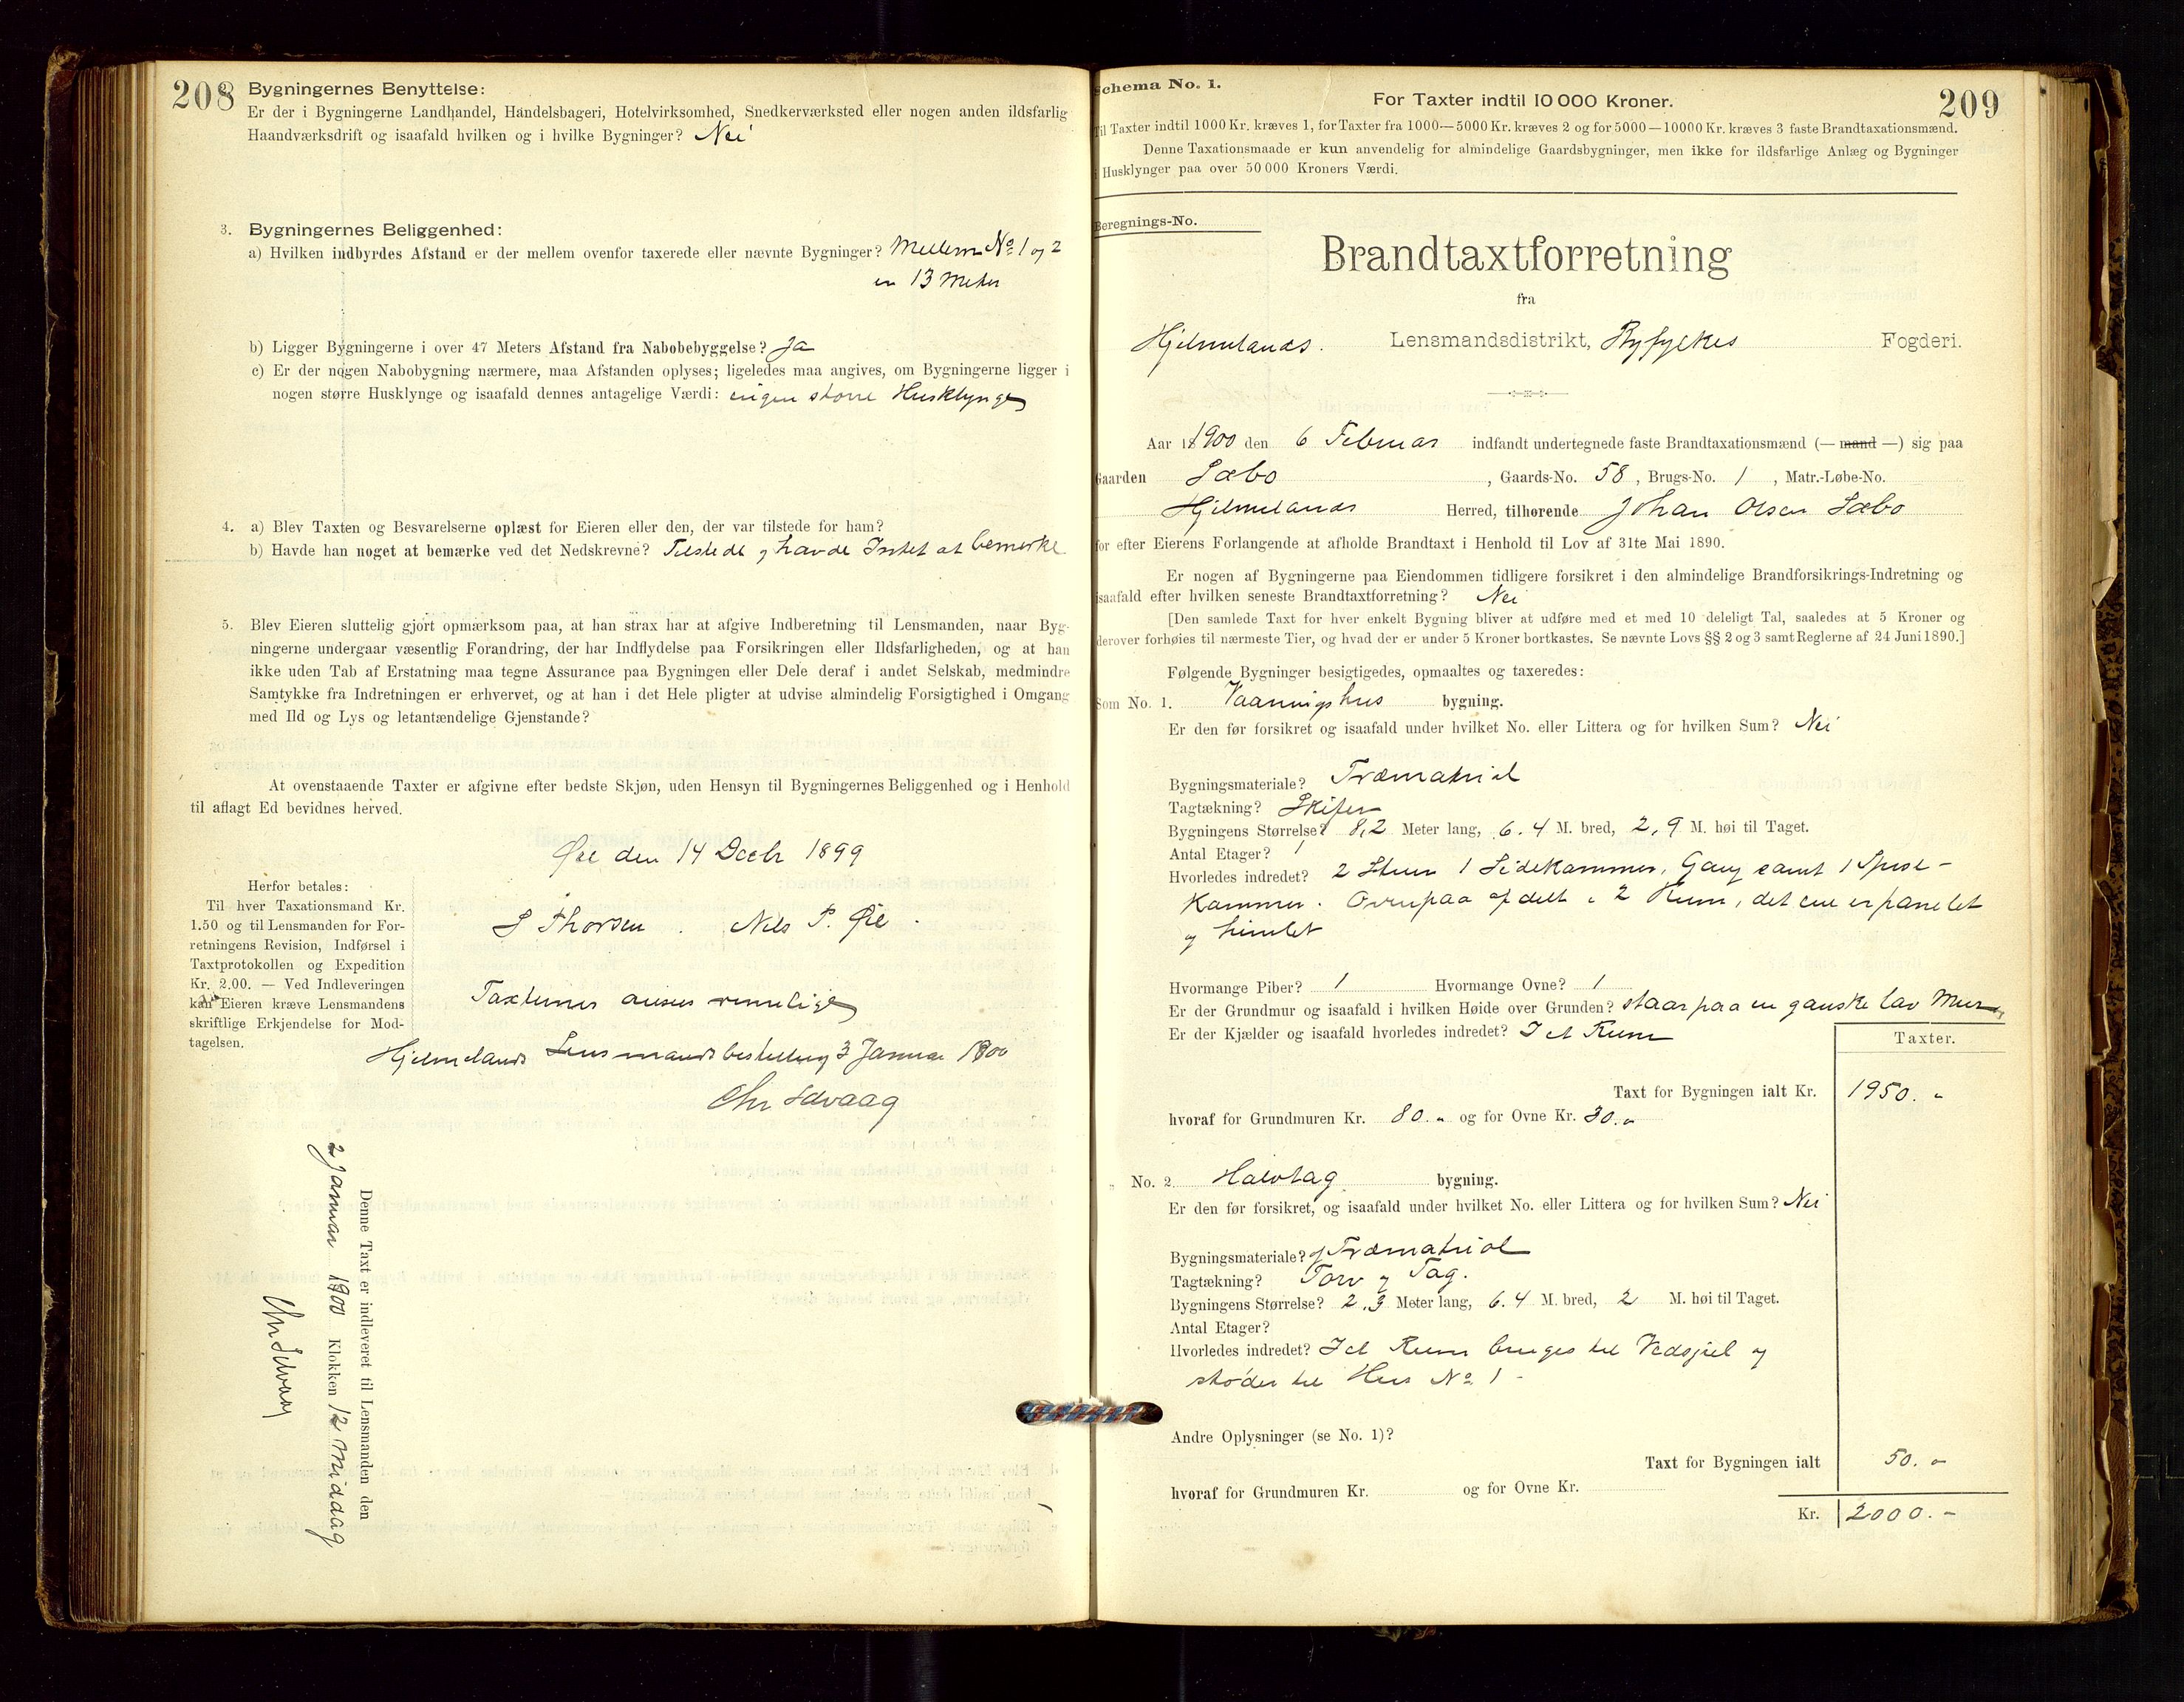 208
Bygningernes Benyttelse:
Er der i Bygningerne Landhandel, Handelsbageri, Hotelvirksomhed, Snedkerværksted eller nogen anden ildsfarlig
Haandværksdrift og isaafald hvilken og i hvilke Bygninger? Nei
3. Bygningernes Beliggenhed:
a) Hvilken indbyrdes Afstand er der mellem ovenfor taxerede eller nævnte Bygninger? Mellem No 1 og 2
er 13 Meter
b) Ligger Bygningerne i over 47 Meters Afstand fra Nabobebyggelse? Ja
c) Er der nogen Nabobygning nærmere, maa Afstanden oplyses; ligeledes maa angives, om Bygningerne ligger i
nogen større Husklynge og isaafald dennes antagelige Værdi: ingen større Husklynge
4. a) Blev Taxten og Besvarelserne oplæst for Eieren eller den, der var tilstede for ham?
b) Havde han noget at bemærke ved det Nedskrevne? Tilstede og havde Intet at bemerke
5. Blev Eieren sluttelig gjort opmærksom paa, at han strax har at afgive Indberetning til Lensmanden, naar Byg-
ningerne undergaar væsentlig Forandring, der har Indflydelse paa Forsikringen eller Ildsfarligheden, og at han
ikke uden Tab af Erstatning maa tegne Assurance paa Bygningen eller Dele deraf i andet Selskab, medmindre
Samtykke fra Indretningen er erhvervet, og at han i det Hele pligter at udvise almindelig Forsigtighed i Omgang
med Ild og Lys og letantændelige Gjenstande?
At ovenstaaende Taxter er afgivne efter bedste Skjøn, uden Hensyn til Bygningernes Beliggenhed og i Henhold
til aflagt Ed bevidnes herved.
Øie den 14 Decbr 1899
S Thorsen . Nils P. Øie .
Herfor betales:
Til hver Taxationsmand Kr.
1.50 og til Lensmanden for For-
retningens Revision, Indførsel i
Taxtprotokollen og Expedition
Kr. 2.00. — Ved Indleveringen
kan Eieren kræve Lensmandens
skriftlige Erkjendelse for Mod-
tagelsen.
Taxterne ansees rimelige
Hjelmelands Lensmandsbestilling 3 Januar 1900
Chr Edvaag
Denne Taxt er indleveret til Lensmanden den
2 Januar 1900 Klokken 12 Middag
Chr Edvaag
Schema No. 1.
209
For Taxter indtil 10 000 Kroner.
Til Taxter indtil 1000 Kr. kræves 1, for Taxter fra 1000—5000 Kr. kræves 2 og for 5000—10000 Kr. kræves 3 faste Brandtaxationsmænd.
Denne Taxationsmaade er kun anvendelig for almindelige Gaardsbygninger, men ikke for ildsfarlige Anlæg og Bygninger
i Husklynger paa over 50 000 Kroners Værdi.
Beregnings-No.
Brandtaxtforretning
fra
Hjelmelands. Lensmandsdistrikt, Ryfylkes Fogderi.
Aar 1900 den 6 Februar indfandt undertegnede faste Brandtaxationsmænd (— mand —) sig paa
Gaarden Sæbø, Gaards-No. 58, Brugs-No. 1, Matr.-Løbe-No.
Hjelmelands Herred, tilhørende Johan Olsen Sæbø
for efter Eierens Forlangende at afholde Brandtaxt i Henhold til Lov af 31te Mai 1890.
Er nogen af Bygningerne paa Eiendommen tidligere forsikret i den almindelige Brandforsikrings-Indretning og
isaafald efter hvilken seneste Brandtaxtforretning? Nei
[Den samlede Taxt for hver enkelt Bygning bliver at udføre med et med 10 deleligt Tal, saaledes at 5 Kroner og
derover forhøies til nærmeste Tier, og hvad der er under 5 Kroner bortkastes. Se nævnte Lovs §§ 2 og 3 samt Reglerne af 24 Juni 1890.]
Følgende Bygninger besigtigedes, opmaaltes og taxeredes:
Som No. 1. Vaaningshus bygning.
Er den før forsikret og isaafald under hvilket No. eller Littera og for hvilken Sum? Nei
Bygningsmateriale? Træmatrial
Tagtækning? Skifer
Bygningens Størrelse? 8,2 Meter lang, 6.4 M. bred, 2,9 M. høi til Taget.
Antal Etager? 1
Hvorledes indredet? 2 Stuer 1 Sidekammer, Gang samt 1 Spise-
kammer. Ovenpaa afdelt i 2 Rum, det ene er panelet
og himlet
Hvormange Piber? 1 Hvormange Ovne? 1
Er der Grundmur og isaafald i hvilken Høide over Grunden? staar paa en ganske lav Mur
Er der Kjælder og isaafald hvorledes indredet? I et Rum
Taxter.
Taxt for Bygningen ialt Kr. 1950. "
hvoraf for Grundmuren Kr. 80. " og for Ovne Kr. 30. "
" No. 2. Halvtag bygning.
Er den før forsikret, og isaafald under hvilket No. eller Littera og for hvilken Sum? Nei
Bygningsmateriale? Træmatrial
Tagtækning? Torv og Tag.
Bygningens Størrelse? 2,3 Meter lang, 6.4 M. bred, 2 M. høi til Taget.
Antal Etager?
Hvorledes indredet? I et Rum bruges til Vedsjul og
støder til Hus No 1 -
Andre Oplysninger (se No. 1)?
Taxt for Bygningen ialt 50. "
hvoraf for Grundmuren Kr. og for Ovne Kr.
Kr. 2000. -